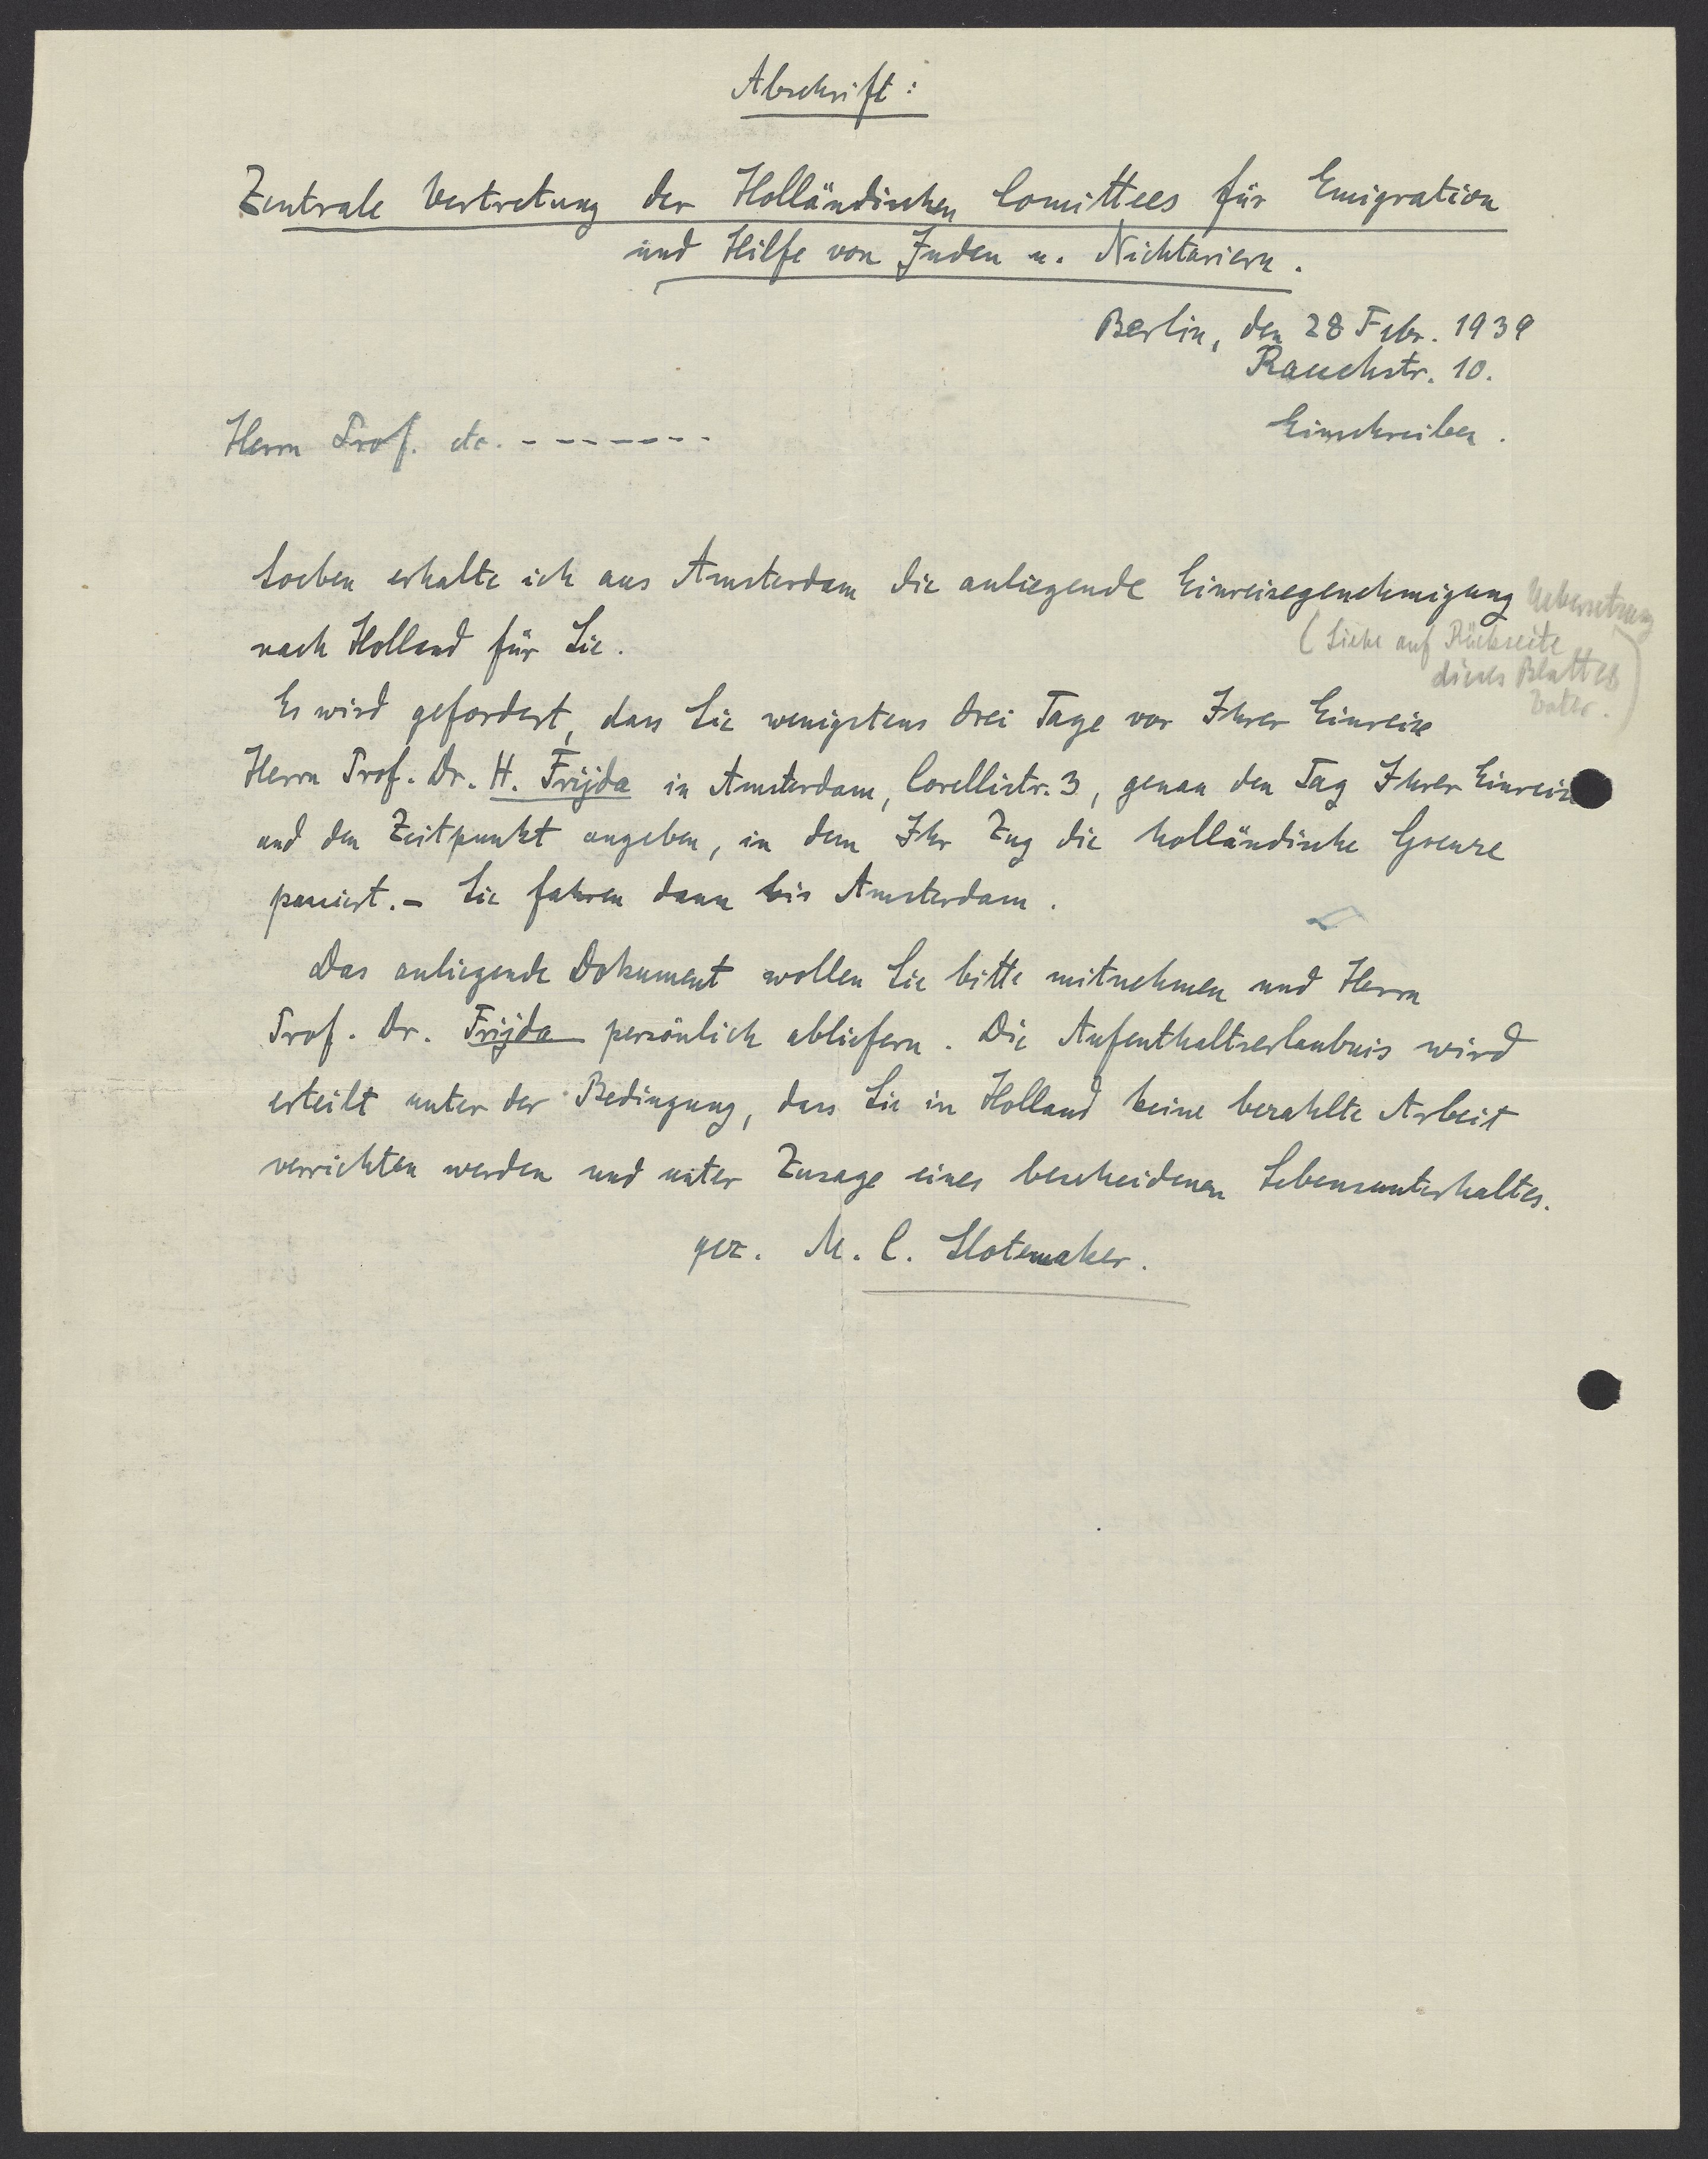 Abschrift:
Zentrale Vertretung der Holländischen Comittees für Emigration
und Hilfe von Juden u. Nichtariern.
Berlin, den 28 Febr. 1939
Rauchstr. 10.
Einschreiben.
Herrn Prof. etc. --------
Soeben erhalte ich aus Amsterdam die anliegende Einreisegenehmigung
nach Holland für Sie.
Uebersetzung
(Siehe auf Rückseite
dieses Blattes
Es wird gefordert, dass Sie wenigstens drei Tage vor Ihrer Einreise
Herrn Prof. Dr. H. Frijda in Amsterdam, Corellistr. 3, genau den Tag Ihrer Einreise
und den Zeitpunkt angeben, in dem Ihr Zug die holländische Grenze
passiert. - Sie fahren dann bis Amsterdam.
Das anliegende Dokument wollen Sie bitte mitnehmen und Herrn
Prof. Dr. Frijda persönlich abliefern. Die Aufenthaltserlaubnis wird
erteilt unter der Bedingung, dass Sie in Holland keine bezahlte Arbeit
verrichten werden und unter Zusage eines bescheidenen Lebensunterhaltes.
gez. M. C. Slotemaker.